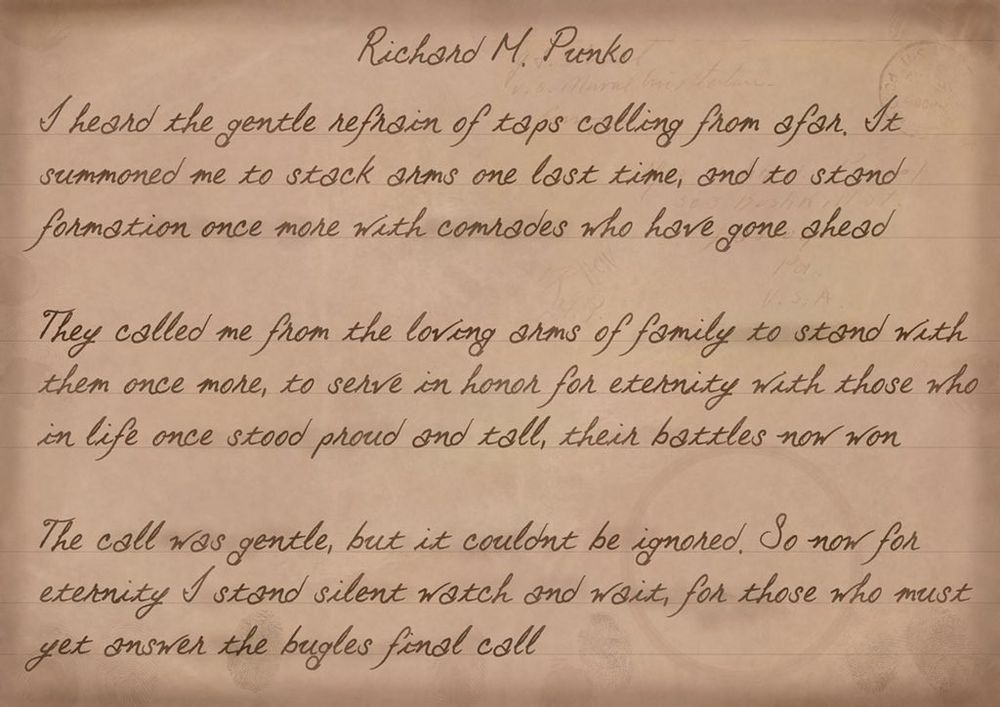 Richard M. Punko
I heard the gentle refrain of taps calling from afar. It
summoned me to stack arms one last time, and to stand
formation once more with comrades who have gone ahead
They called me from the loving arms of family to stand with
them once more, to serve in honor for eternity with those who
in life once stood proud and tall, their battles now won
The call was gentle, but it couldnt be ignored. So now for
eternity I stand silent watch and wait, for those who must
yet answer the bugles final call